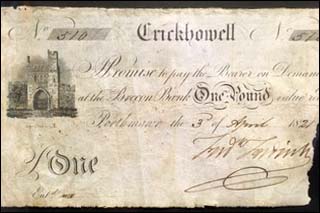 No. 510 Crickhowell No. 51
I Promise to pay the Bearer on Demand
at the Brecon Bank One Pound value re
the 3d of April 182
£ One
Entd.